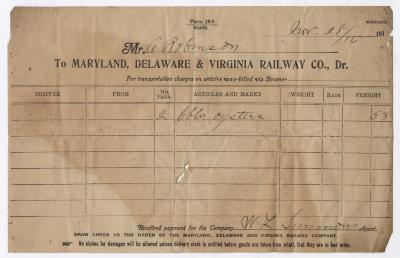 Form 19-S
Nov. 28/16 191
Mr. A Robinson
To MARYLAND, DELAWARE & VIRGINIA RAILWAY CO., Dr.
For transportation charges on articles way-billed via Steamer
SHIPPER FROM No. PKGS. ARTICLES AND MARKS WEIGHT RATE FREIGHT
2 bbls oysters 53
Received payment for the Company W. L. Simmons Agent.
DRAW CHECK TO THE ORDER OF THE MARYLAND, DELAWARE AND VIRGINIA RAILWAY COMPANY.
No claims for damages will be allowed unless delivery clerk is notified before goods are taken from wharf, that they are in bad order.